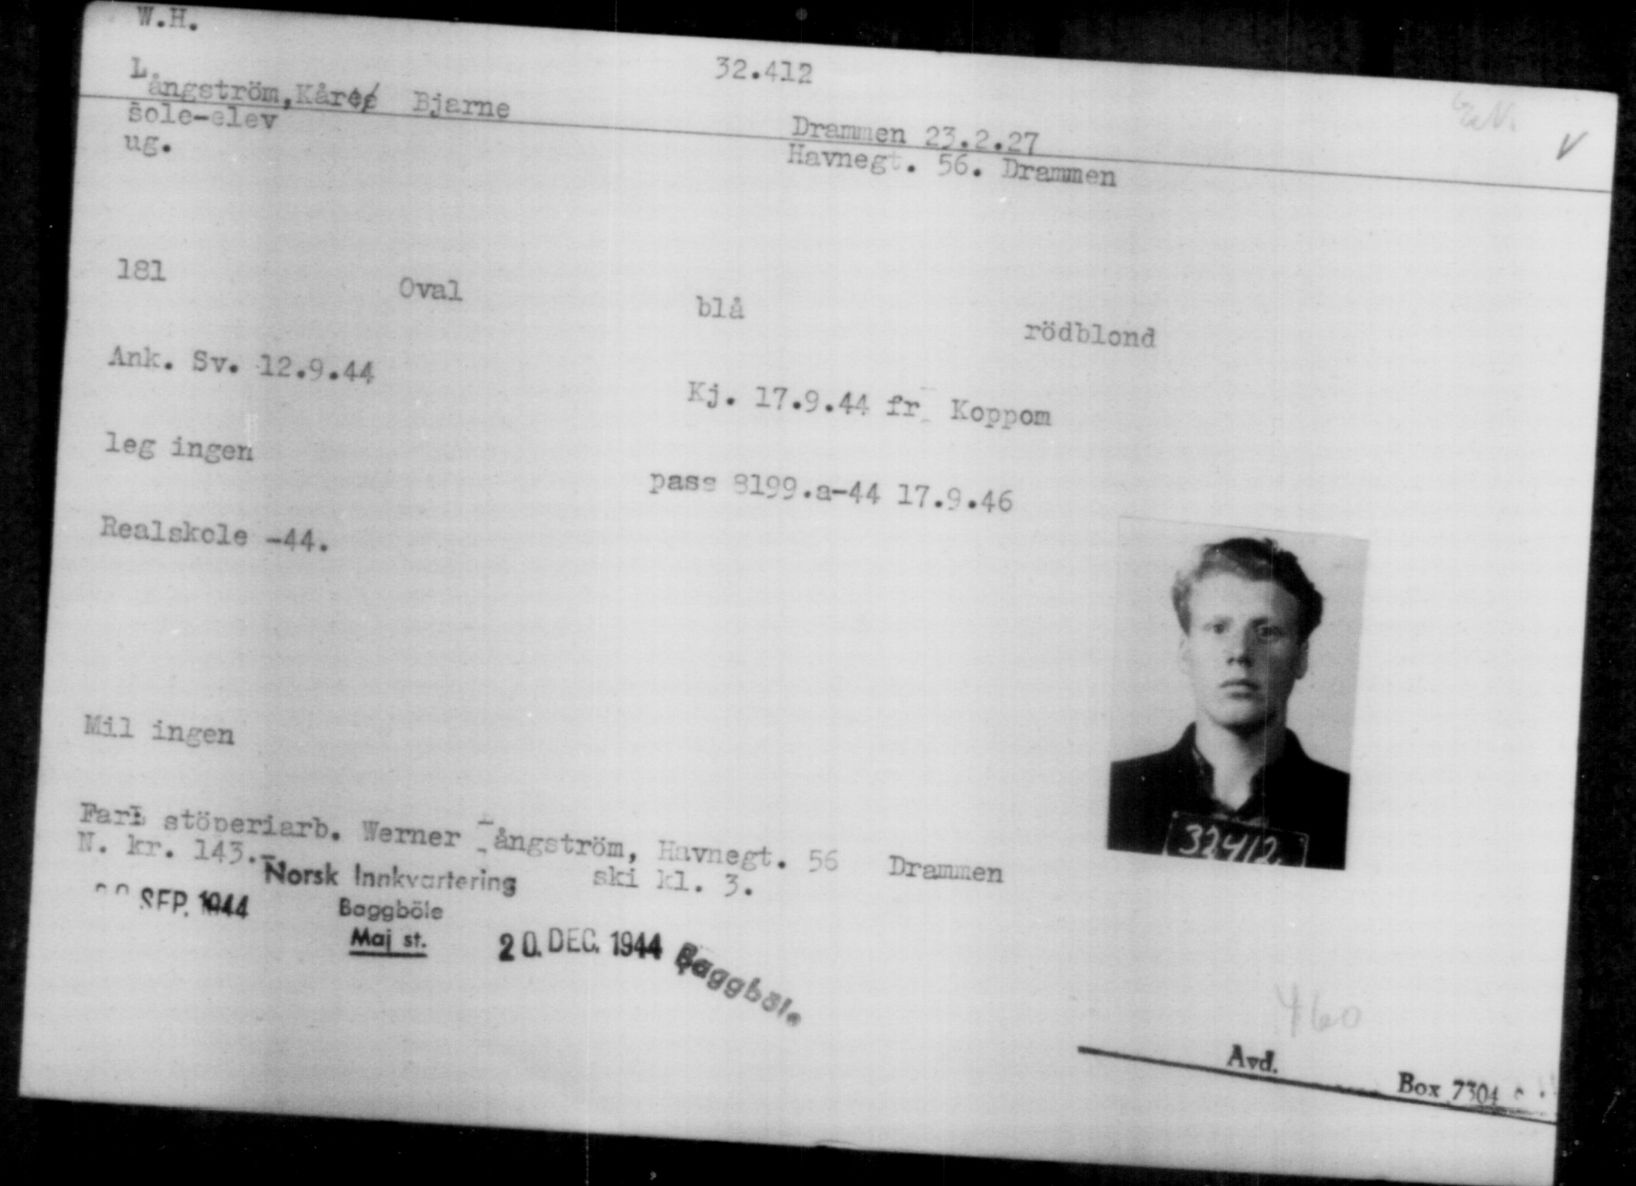 W.H.
32.412
Långström,Kåre Bjarne
Drammen 23.2.27
sole-elev
Havnegt. 56. Drammen
ug.
181 Oval blå rödblond
Ank. Sv. 12.9.44
Kj. 17.9.44 fr Koppom
leg ingen
pass 8199.a-44 17.9.46
Realskole -44.
32412
Mil ingen
Far: stöperiarb. Werner Långström, Havnegt. 56 Drammen
N. kr. 143.-. ski kl. 3.
Norsk Innkvartering
SEP. 1944
Baggböle
Maj st.
20. DEC. 1944 Baggböle
460
Avd. Box 7304